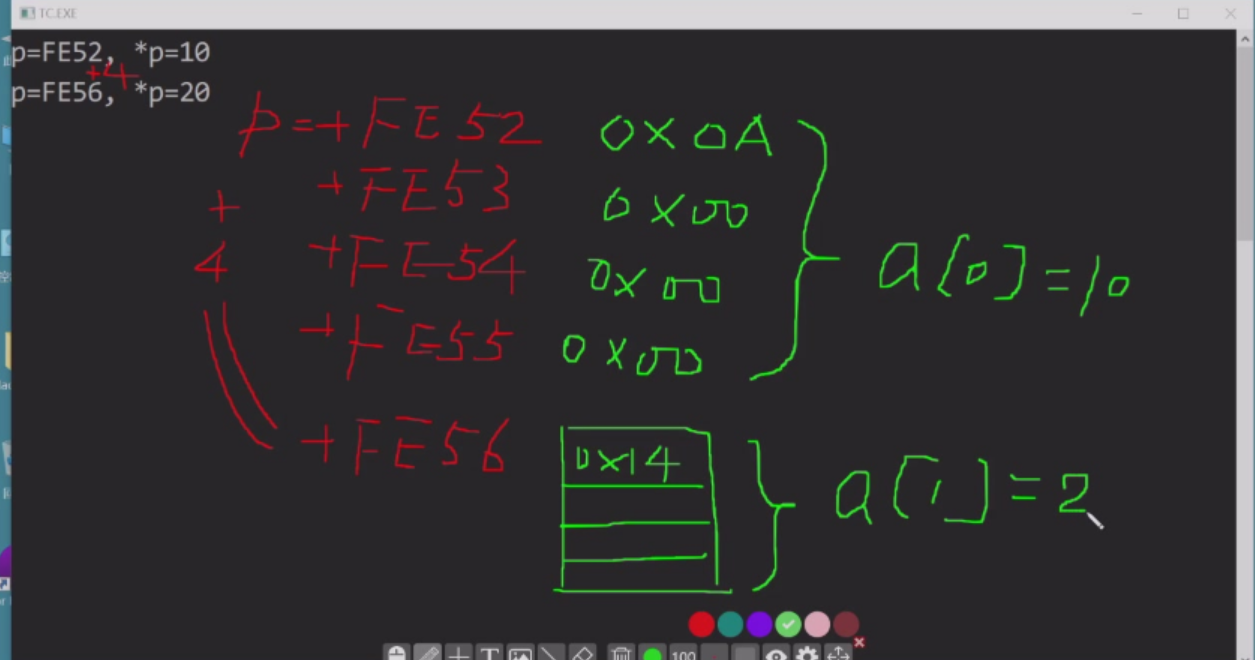 TC.EXE
p=FE52, *p=10
+4
p=FE56, *p=20
p=+FE52 0X0A
+FE53 0X00
+
4
+FE54 0X00
a[0]=10
+FE55 0X00
+FE56 0X14
a[1]=2
T
100